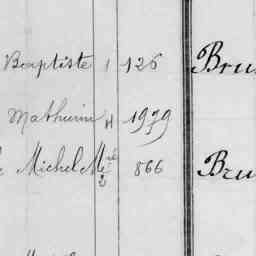 Baptiste 1 126 Bru
Mathurin 4 1979
Michel 866 Bru